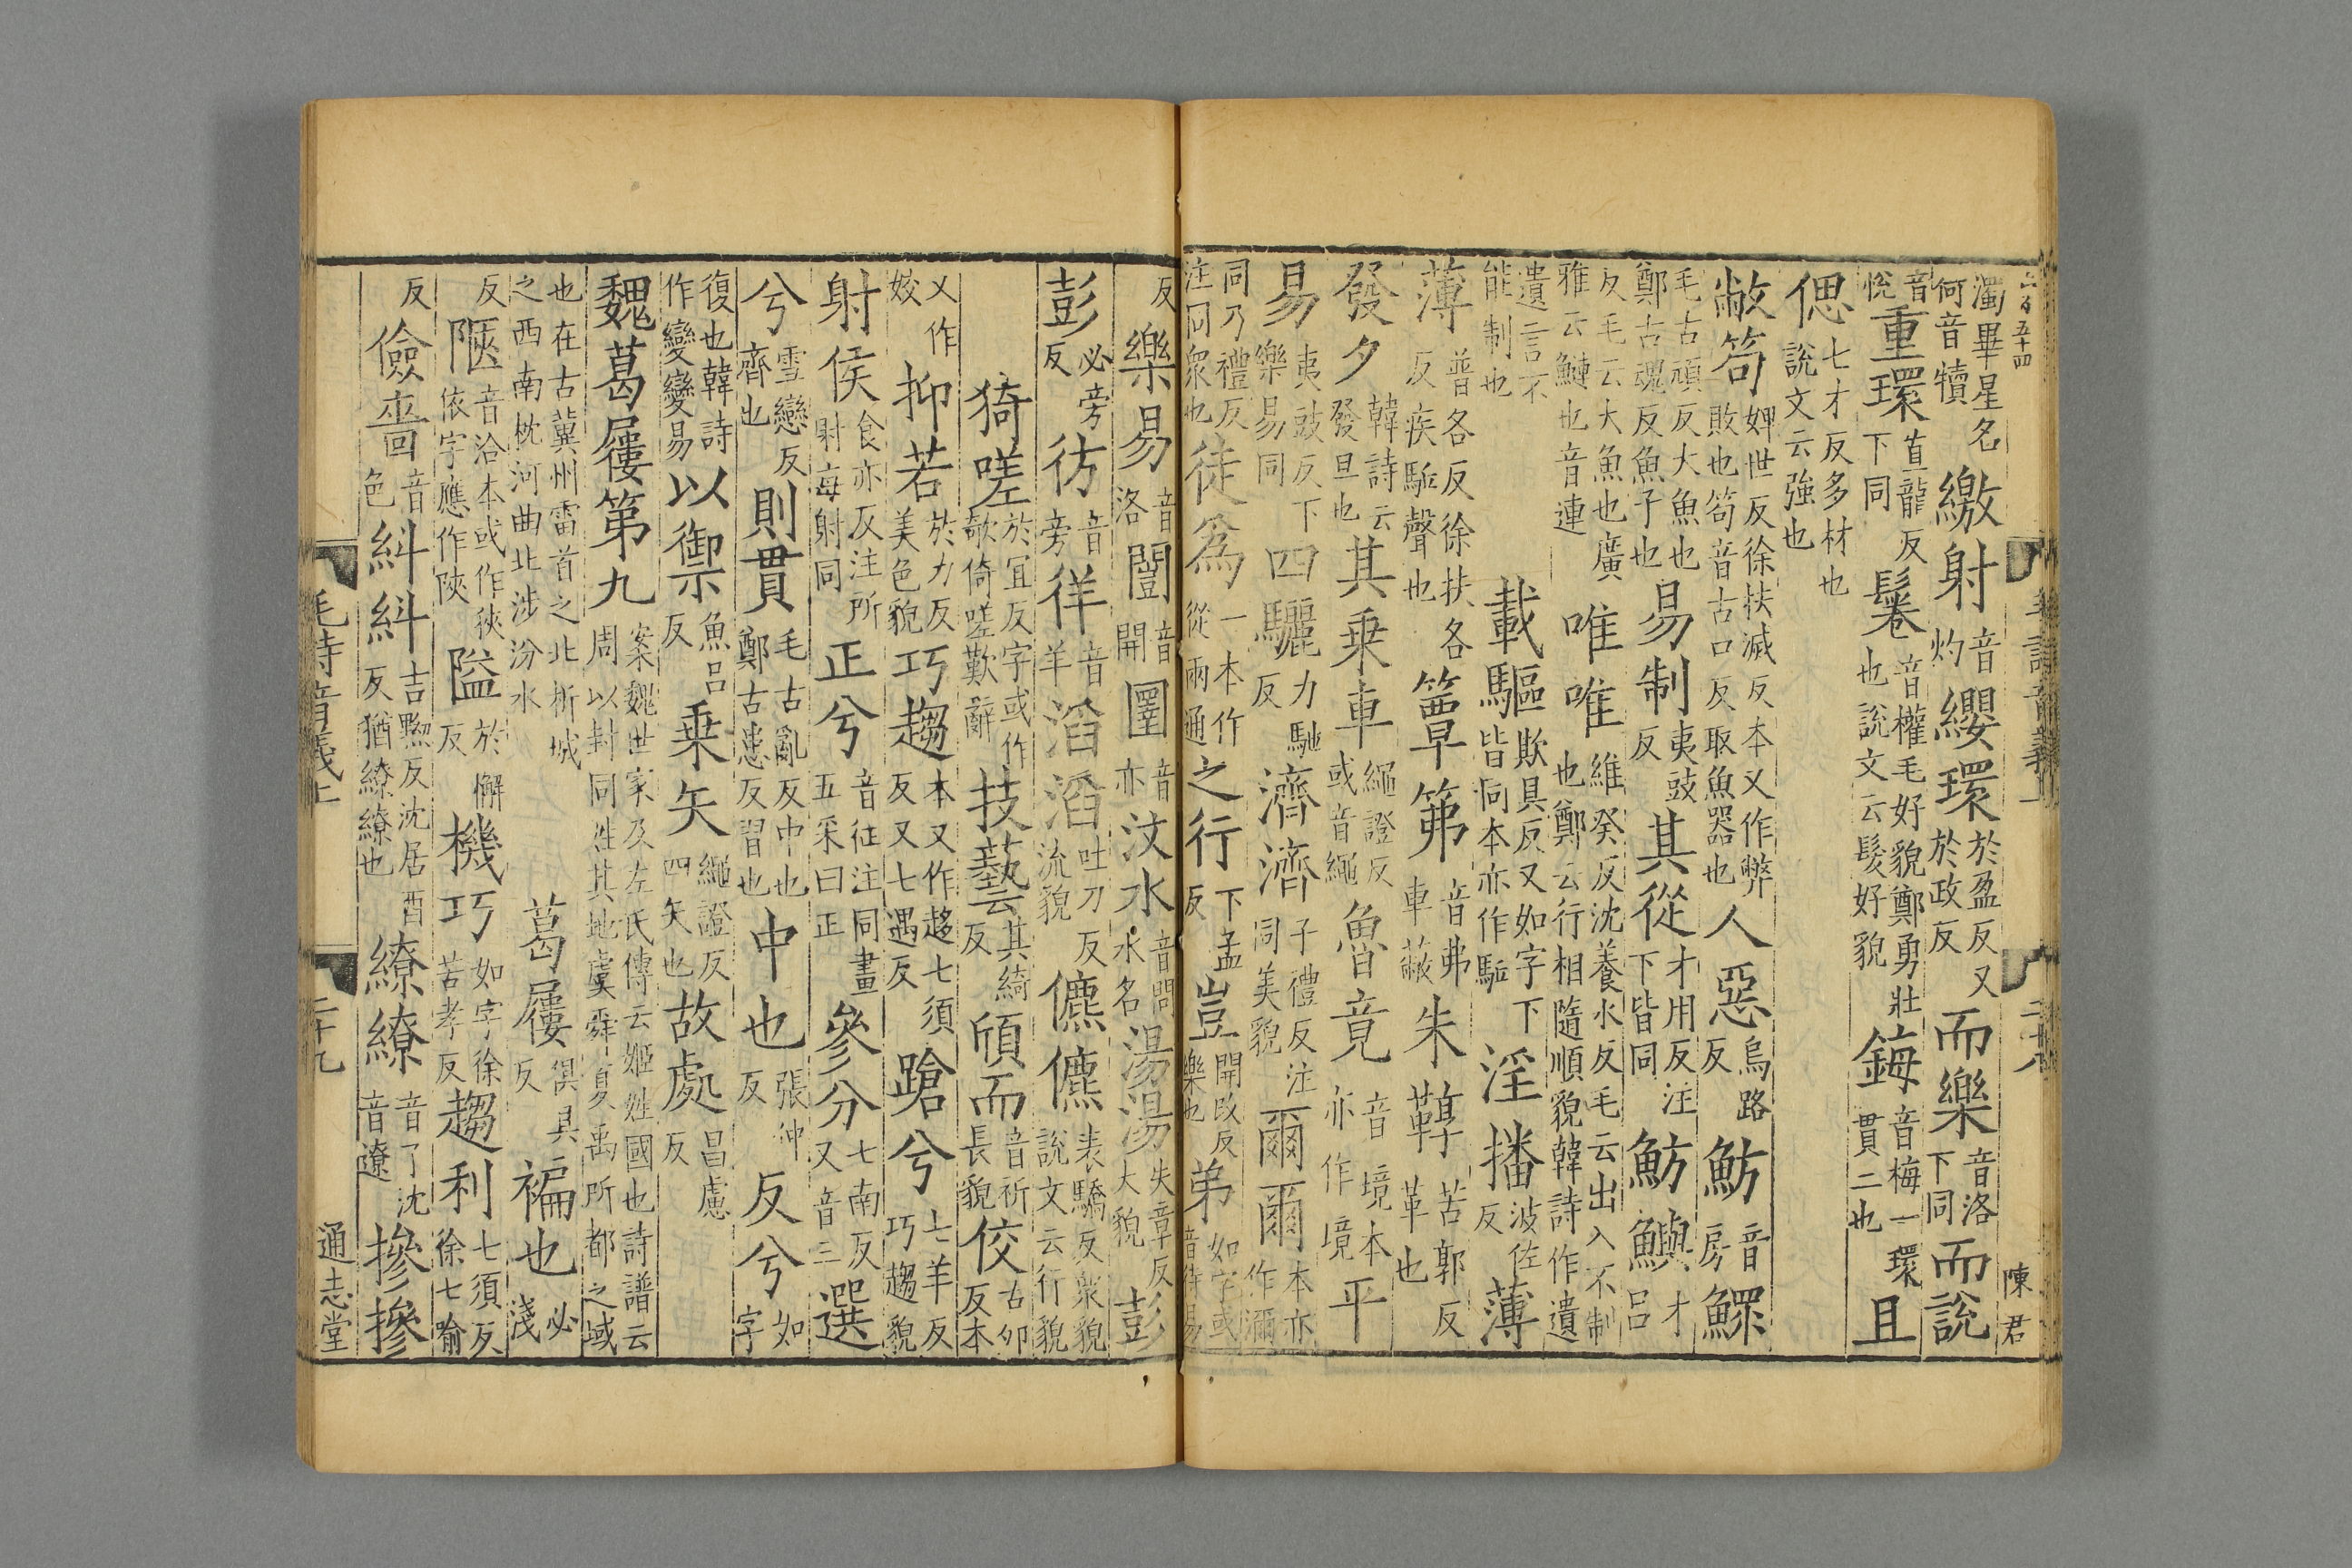 六百五十四
毛詩音義上
二十八
陳君
濁畢星名何音犢繳射音灼纓環於盈反又於政反而樂音洛下同而說
音悅重環直龍反下同鬈音權毛好貌鄭勇壯也說文云髮好貌鋂音梅一環貫二也且
偲七才反多材也說文云強也
敝笱婢世反徐扶滅反本又作弊敗也笱音古口反取魚器也人惡烏路反魴音房鰥
毛古頑反大魚也鄭古魂反魚子也易制夷豉反其從才用反注下皆同魴鱮才呂
反毛云大魚也廣雅云鰱也音連唯唯維癸反沈養水反毛云出入不制也鄭云行相隨順貌韓詩作遺
遺言不能制也載驅欺具反又如字下皆同本亦作駈淫播波佐反薄
薄普各反徐扶各反疾駈聲也簟笰音弗車蔽朱鞹苦郭反革也
發夕韓詩云發旦也其乗車繩證反或音繩魯竟音境本亦作境平
易夷豉反下樂易同四驪力馳反濟濟子禮反注同美貌爾爾本亦作濔
同乃禮反注同衆也徒為一本作從兩通之行下孟反豈開改反樂也弟如字或音待易
反樂易音洛闓音開圛音亦汶水音問水名湯湯失章反大貌彭
彭必旁反彷音旁徉音羊滔滔吐刀反流貌儦儦表驕反衆貌說文云行貌
猗嗟於宜反字或作欹倚嗟歎辭技藝其綺反頎而音祈長貌佼古卯反本
又作姣抑若於力反美色貌巧趨本又作趍七須反又七遇反蹌兮七羊反巧趨貌
射侯食亦反注所射每射同正兮音征注同畫五采曰正參分七南反又音三選
兮雪戀反齊也則貫毛古亂反中也鄭古患反習也中也張仲反反兮如字
復也韓詩作變變易以禦魚呂反乗矢繩證反四矢也故處昌慮反
魏葛屨第九案魏世家及左氏傳云姬姓國也詩譜云周以封同姓其地虞舜夏禹所都之域
也在古冀州雷首之北析城之西南枕河曲北涉汾水葛屨俱具反褊也必淺
反陿音洽本或作狹依字應作陝隘於懈反機巧如字徐苦孝反趨利七須反徐七喻
反儉嗇音色糾糾吉黝反沈居酉反猶繚繚也繚繚音了沈音遼摻摻
毛詩音義上
二十九
通志堂